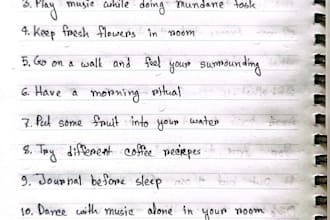 3. Play music while doing mundane task
4. Keep fresh flowers in room
5. Go on a walk and feel your surrounding
6. Have a morning ritual
7. Put some fruit into your water
8. Try different coffee recipes
9. Journal before sleep
10. Dance with music alone in your room